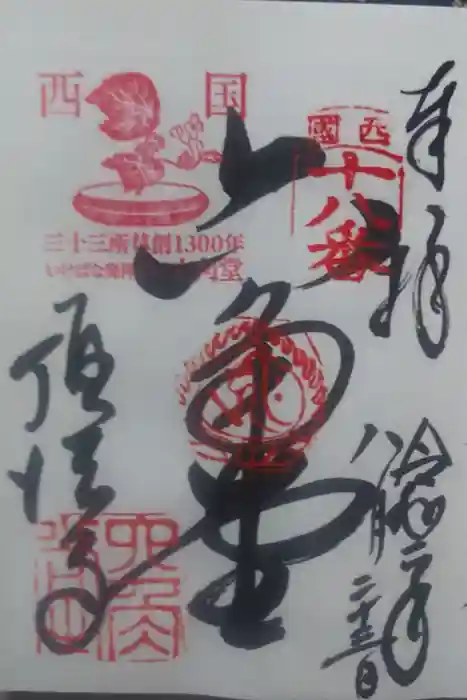 奉拝
令和二年
八月二十三日
西國
十八番
六角堂
西国
三十三所草創1300年
いけばな発祥の地 六角堂
頂法寺